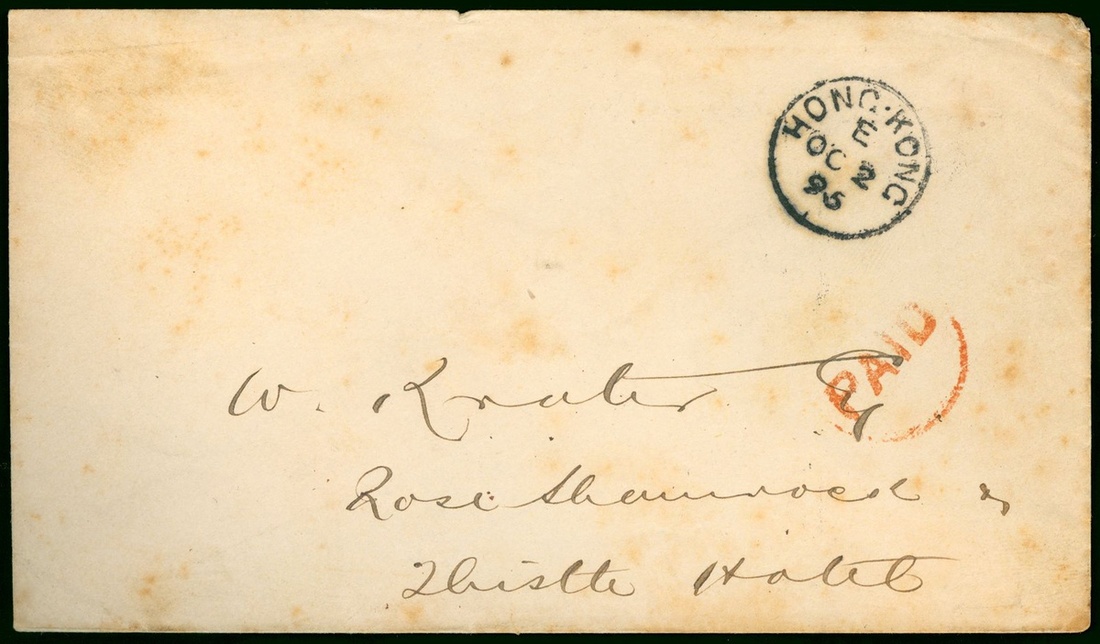 HONG·KONG
E
OC 2
95
PAID
W. Krater
Rose Shamrock &
Thistle Hotel